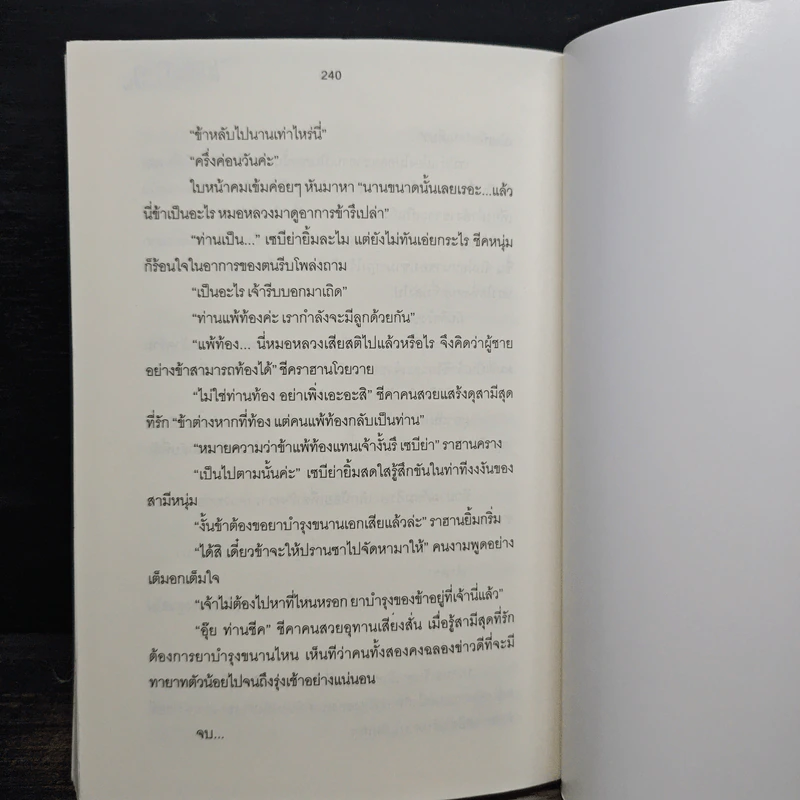 240
“ข้าหลับไปนานเท่าไหร่นี่”
“ครึ่งค่อนวันค่ะ”
ใบหน้าคมเข้มค่อยๆ หันมาหา “นานขนาดนั้นเลยเรอะ...แล้ว
นี่ข้าเป็นอะไร หมอหลวงมาดูอาการข้ารึเปล่า”
“ท่านเป็น...” เซบีย่ายิ้มละไม แต่ยังไม่ทันเอ่ยกระไร ชีคหนุ่ม
ก็ร้อนใจในอาการของตนรีบโพล่งถาม
“เป็นอะไร เจ้ารีบบอกมาเถิด”
“ท่านแพ้ท้องค่ะ เรากำลังจะมีลูกด้วยกัน”
“แพ้ท้อง... นี่หมอหลวงเสียสติไปแล้วหรือไร จึงคิดว่าผู้ชาย
อย่างข้าสามารถท้องได้” ชีคราฮานโวยวาย
“ไม่ใช่ท่านท้อง อย่าเพิ่งเอะอะสิ” ชีคาคนสวยแสร้งดุสามีสุด
ที่รัก “ข้าต่างหากที่ท้อง แต่คนแพ้ท้องกลับเป็นท่าน”
“หมายความว่าข้าแพ้ท้องแทนเจ้างั้นรึ เซบีย่า” ราฮานคราง
“เป็นไปตามนั้นค่ะ” เซบีย่ายิ้มสดใสรู้สึกขันในท่าทีงงงันของ
สามีหนุ่ม
“งั้นข้าต้องขอยาบำรุงขนานเอกเสียแล้วล่ะ” ราฮานยิ้มกริ่ม
“ได้สิ เดี๋ยวข้าจะให้ปรานซาไปจัดหามาให้” คนงามพูดอย่าง
เต็มอกเต็มใจ
“เจ้าไม่ต้องไปหาที่ไหนหรอก ยาบำรุงของข้าอยู่ที่เจ้านี่แล้ว”
“อุ๊ย ท่านชีค” ชีคาคนสวยอุทานเสียงสั่น เมื่อรู้สามีสุดที่รัก
ต้องการยาบำรุงขนานไหน เห็นทีว่าคนทั้งสองคงฉลองข่าวดีที่จะมี
ทายาทตัวน้อยไปจนถึงรุ่งเช้าอย่างแน่นอน
จบ...